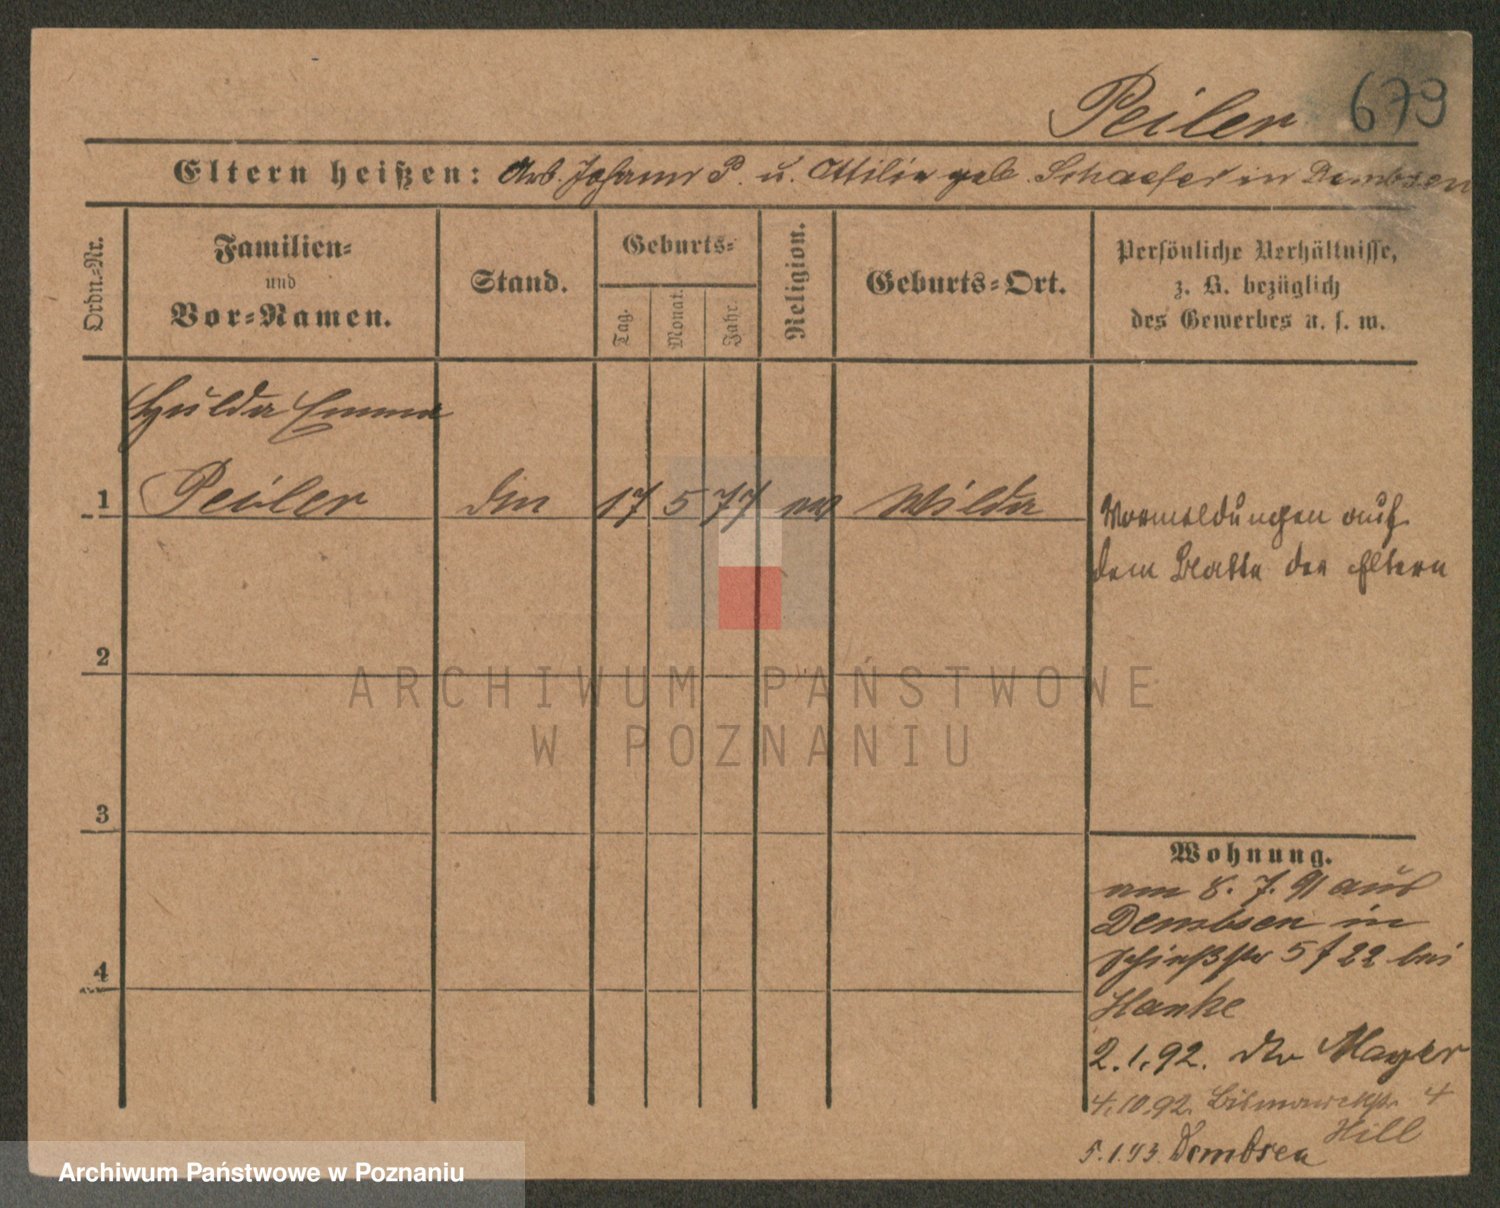 Peiler 679
Eltern heißen: Arb. Johann P. u. Ottilie geb. Schaefer in Dembsen
Ordn.-Nr.
Familien-
und
Vor-Namen.
Stand.
Geburts-
Tag.
Monat.
Jahr.
Religion.
Geburts-Ort.
Persönliche Verhältnisse,
z. B. bezüglich
des Gewerbes u. s. w.
Hulda Emma
1 Peiler 17 5 77 Wilda
Vormeldungen auf
dem Blatte der Eltern
2
ARCHIWUM PAŃSTWOWE
W POZNANIU
3
Wohnung.
am 8. 7. 91 aus
Dembsen in
Schießstr 5 22 bei
4
Hanke
2.1.92. Mayer
4.10.92. Bismarckstr. 4
Hill
5.1.93 Dembsen
Archiwum Państwowe w Poznaniu